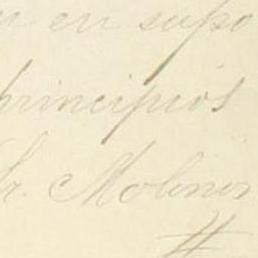 en supo
principios
Sr. Molina